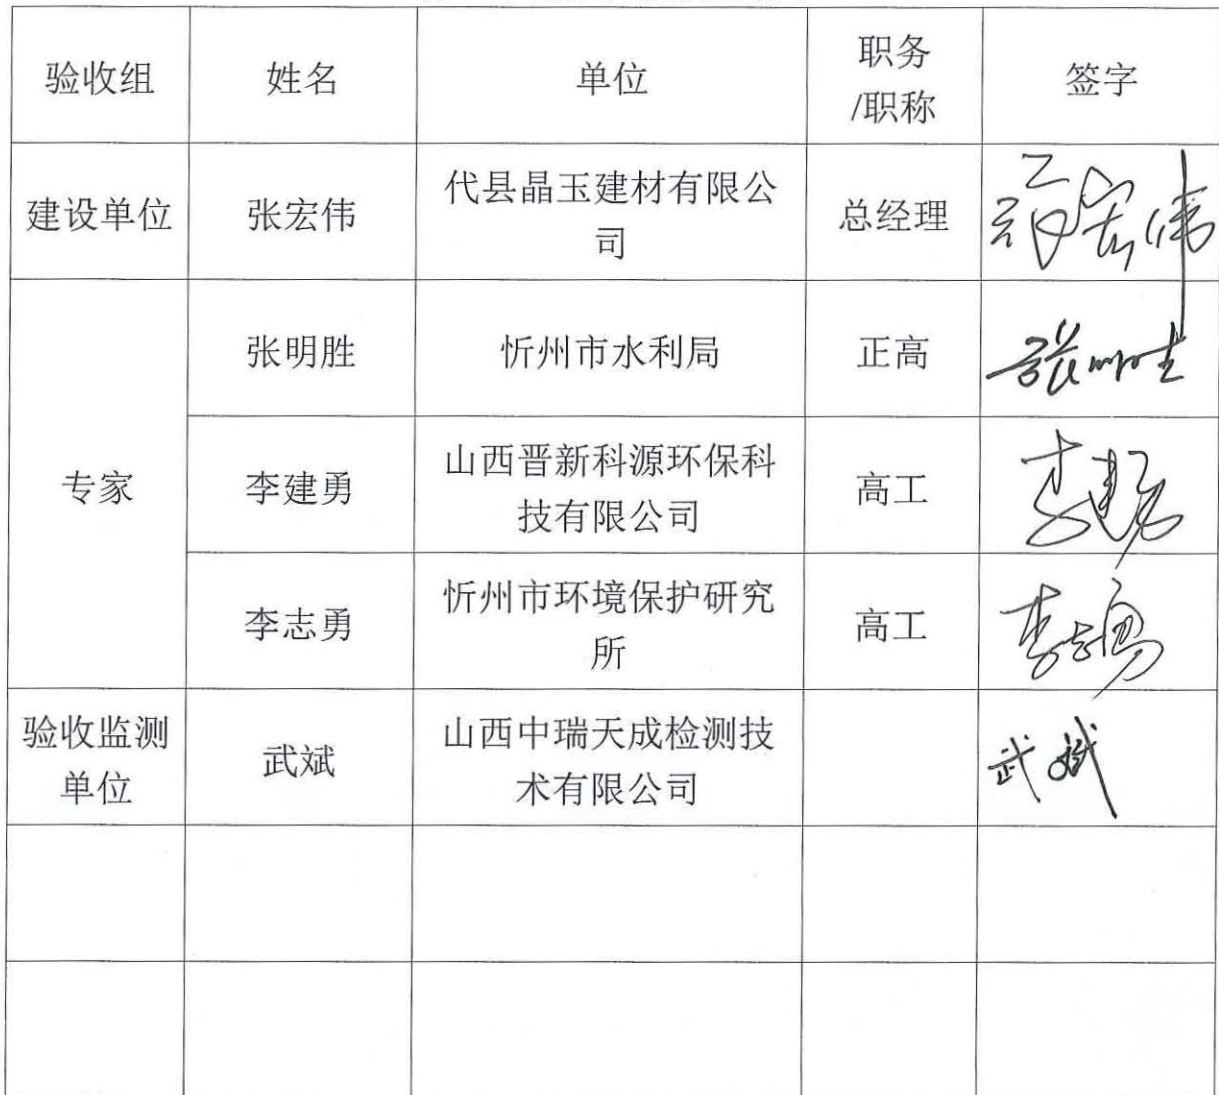 验收组 姓名 单位 职务
/职称 签字
建设单位 张宏伟 代县晶玉建材有限公
司 总经理 张宏伟
专家
张明胜 忻州市水利局 正高 张明生
李建勇 山西晋新科源环保科
技有限公司 高工 李建勇
李志勇 忻州市环境保护研究
所 高工 李志勇
验收监测
单位 武斌 山西中瑞天成检测技
术有限公司 武斌